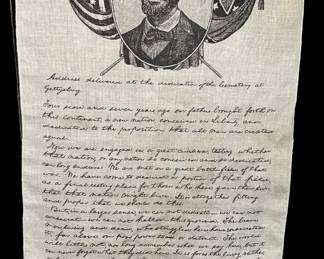 Address delivered at the dedication of the Cemetery at
Gettysburg.
Four score and seven years ago our fathers brought forth on
this continent, a new nation, conceived in Liberty, and
dedicated to the proposition that all men are created
equal.
Now we are engaged in a great civil war, testing whether
that nation, or any nation so conceived and so dedicated,
can long endure. We are met on a great battle field of that
war. We have come to dedicate a portion of that field,
as a final resting place for those who here gave their lives
that that nation might live. It is altogether fitting
and proper that we should do this.
But, in a larger sense, we can not dedicate, we can not
consecrate, we can not hallow this ground. The brave
men, living and dead, who struggled here have consecrated
it, far above our poor power to add or detract. The world
will little note, nor long remember what we say here, but it
can never forget what they did here. It is for us the living, rather,